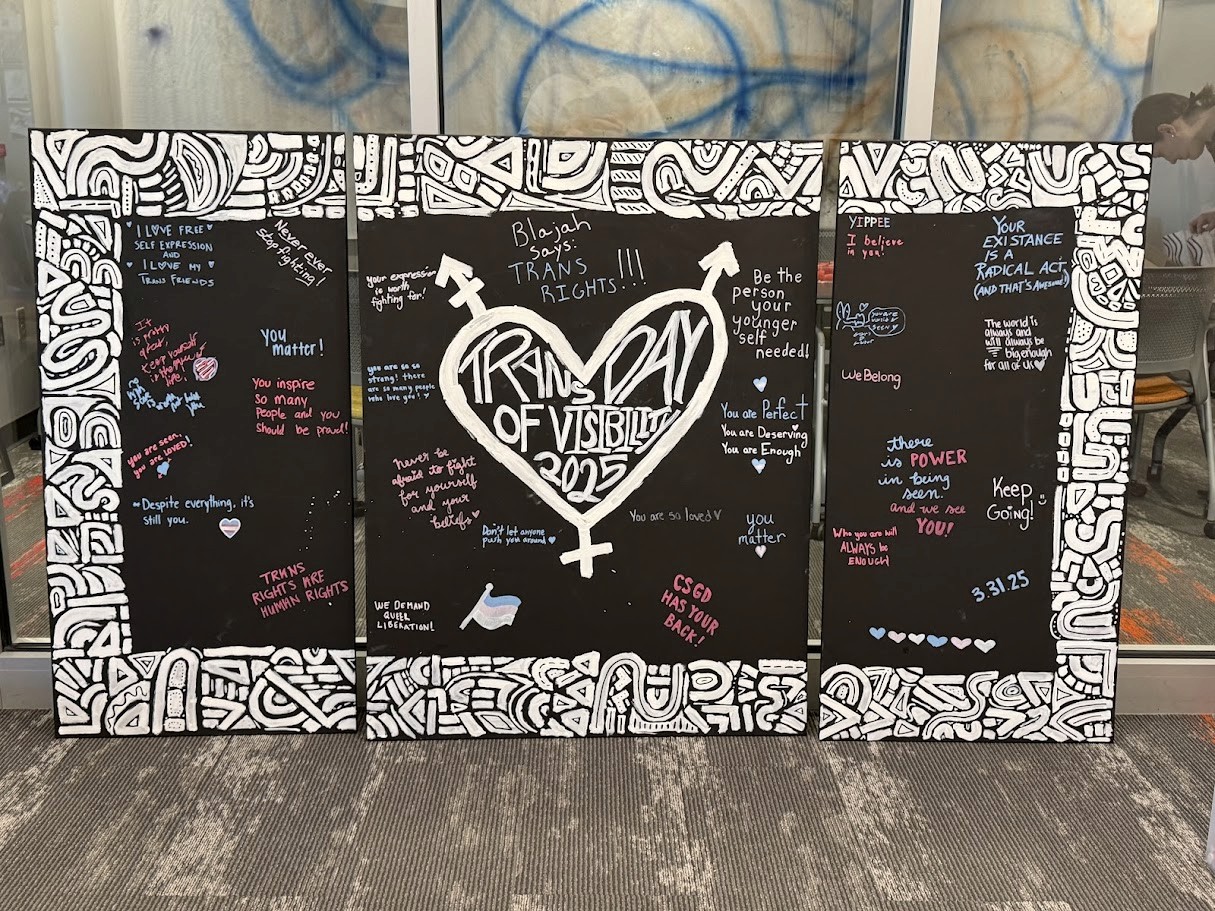 I LOVE FREE
SELF EXPRESSION
AND
I LOVE MY
TRANS FRIENDS
Never Ever
Stop Fighting!
It
is pretty
great.
Keep yourself
in the
life,
You
matter!
You inspire
so many
People and you
should be proud!
you are seen,
you are LOVED!
~Despite everything, it's
still you.
TRANS
RIGHTS ARE
HUMAN RIGHTS
Blajah
says:
TRANS
RIGHTS!!!
your expression
is worth
fighting for!
you are so so
strong! there
are so many people
who love you!
TRANS DAY
OF VISIBILITY
2025
Be the
person
your
younger
self
needed!
You are Perfect
You are Deserving
You are Enough
never be
afraid to fight
for yourself
and your
beliefs
Don't let anyone
push you around
You are so loved
you
matter
WE DEMAND
QUEER
LIBERATION!
CSGD
HAS YOUR
BACK!
YIPPEE
I believe
in you!
YOUR
EXISTANCE
IS A
RADICAL ACT
(AND THAT'S AWESOME!)
YOU ARE
SEEN
The world is
always and
will always
be big enough
for all of us
We Belong
there
is POWER
in being
seen.
and we see
YOU!
Keep
Going!
Who you are will
ALWAYS be
ENOUGH
3.31.25